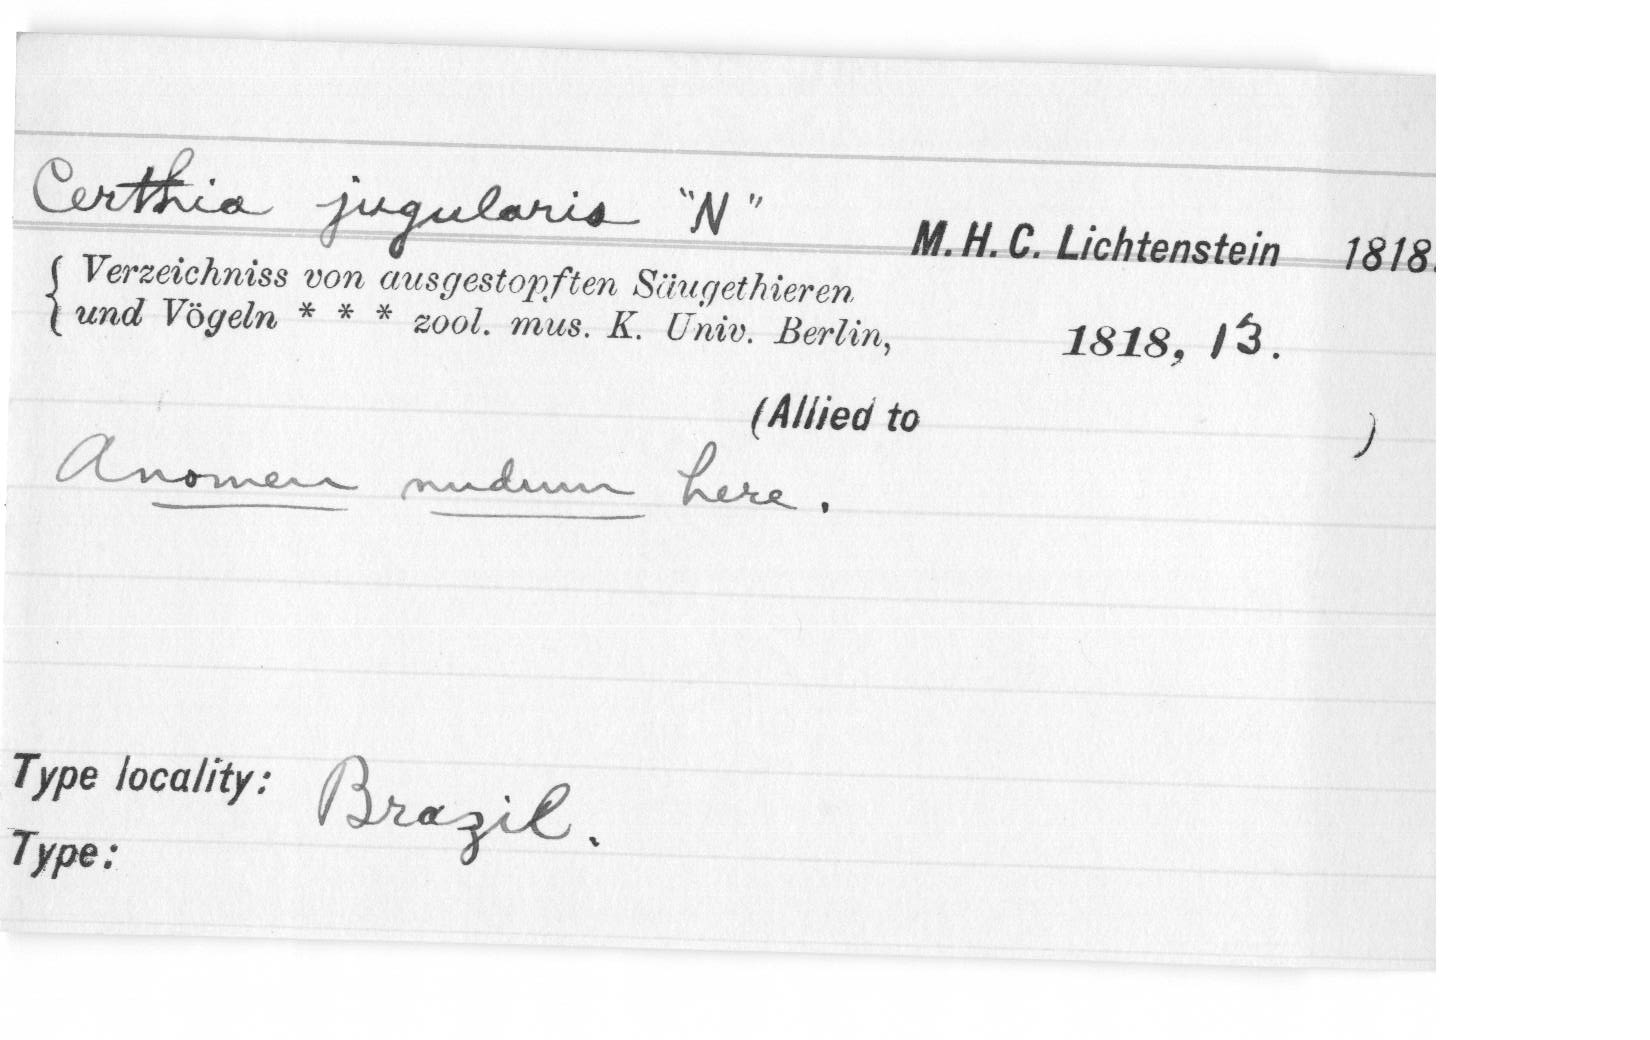 Certhia jugularis "N" M. H. C. Lichtenstein 1818.
{ Verzeichniss von ausgestopften Säugethieren
und Vögeln * * * zool. mus. K. Univ. Berlin, 1818, 13.
(Allied to )
A nomen nudum here.
Type locality: Brazil.
Type: